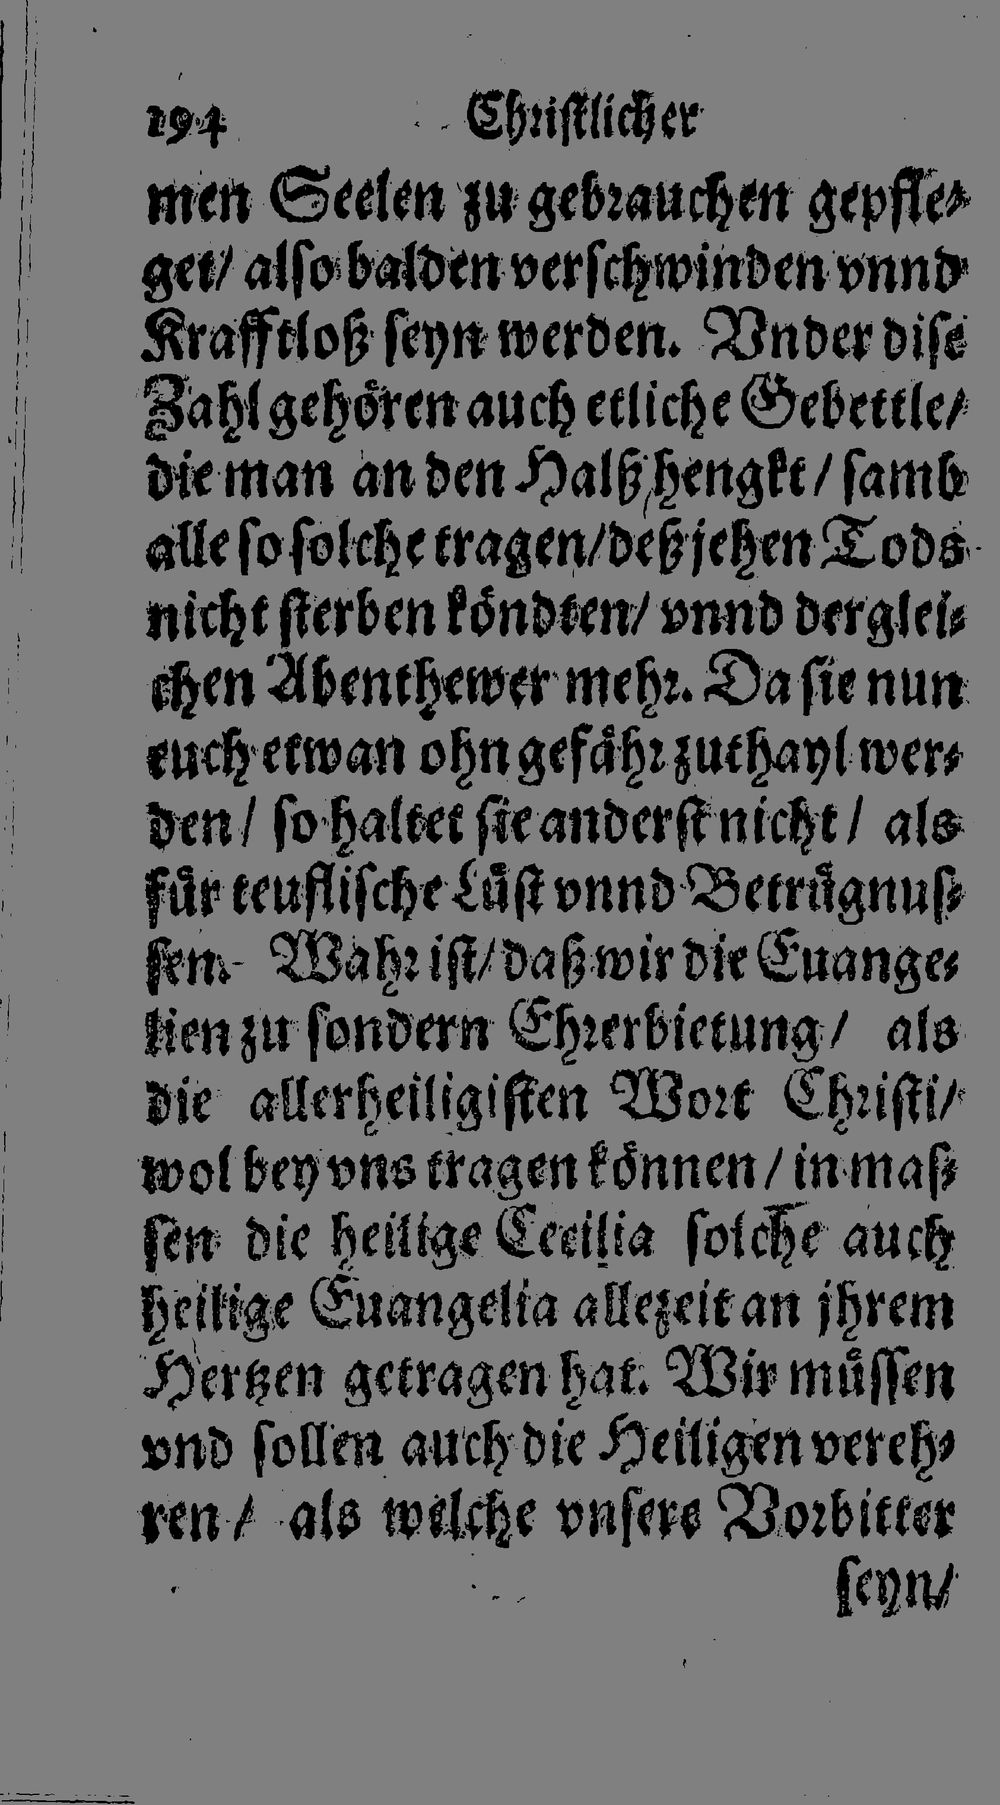 194 Christlicher
men Seelen zu gebrauchen gepfle-
get/ also balden verschwinden vnnd
Krafftloß seyn werden. Vnder dise
Zahl gehören auch etliche Gebettle/
die man an den Halß hengkt/ samb
alle so solche tragen/ deß jehen Tods
nicht sterben köndten/ vnnd derglei-
chen Abenthewer mehr. Da sie nun
euch etwan ohngefähr zuthayl wer-
den/ so haltet sie anderst nicht/ als
für teuflische Lüst vnnd Betrügnus-
sen. Wahr ist/ daß wir die Euange-
lien zu sondern Ehrerbietung/ als
die allerheiligisten Wort Christi/
wol bey vns tragen können/ in mas-
sen die heilige Cecilia solche auch
heilige Euangelia allezeit an jhrem
Hertzen getragen hat. Wir müssen
vnd sollen auch die Heiligen vereh-
ren/ als welche vnsere Vorbitter
seyn/